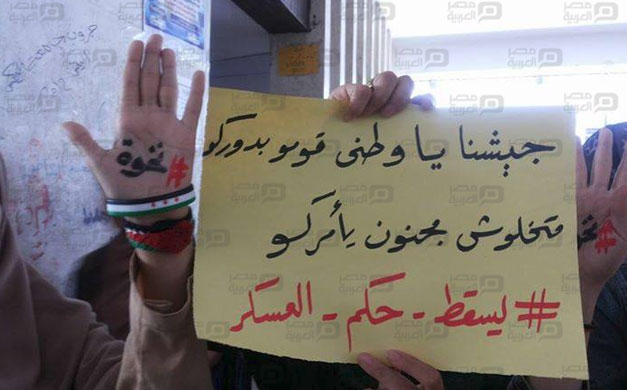 جيشنا يا وطنى قومو بدوركو
متخلوش مجنون يأمركسو
#يسقط - حكم - العسكر
#نخوة
مصر العربية